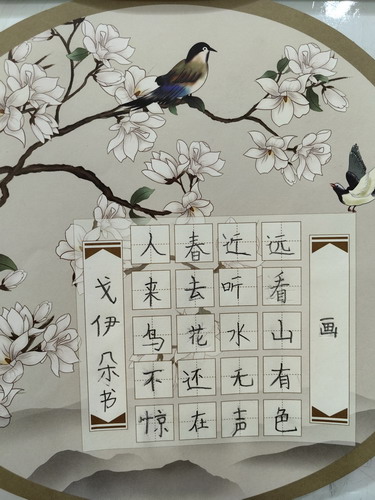 画
远看山有色
近听水无声
春去花还在
人来鸟不惊
戈伊朵书